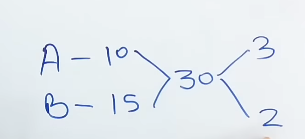 A - 10
B - 15
30
3
2